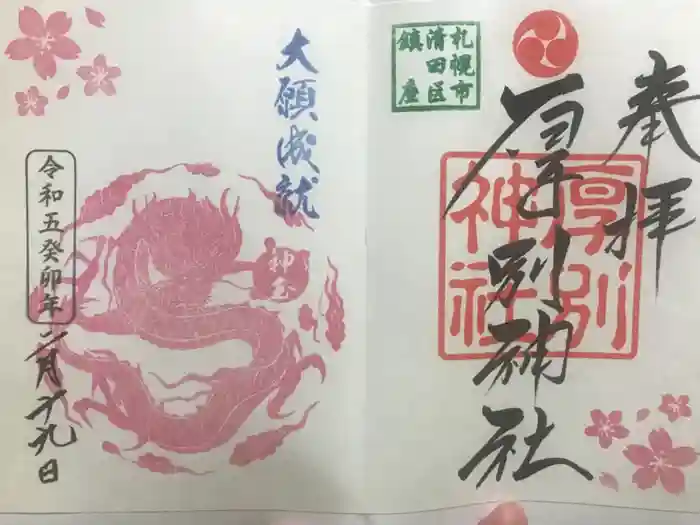 奉拝
厚別神社
札幌市
清田区
鎮座
厚別
神社
大願成就
神宝
令和五癸卯年二月十九日